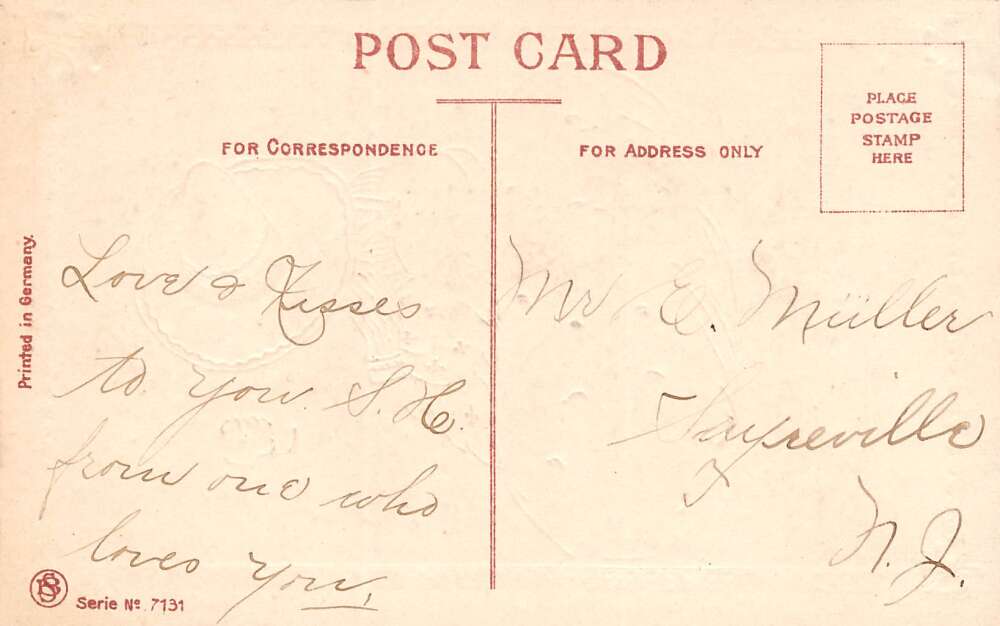 POST CARD
FOR CORRESPONDENCE
FOR ADDRESS ONLY
PLACE
POSTAGE
STAMP
HERE
Printed in Germany.
Love & Kisses
to you S. H.
from one who
loves you.
Mr E. Müller
Sayreville
N. J.
BS
Serie No. 7131